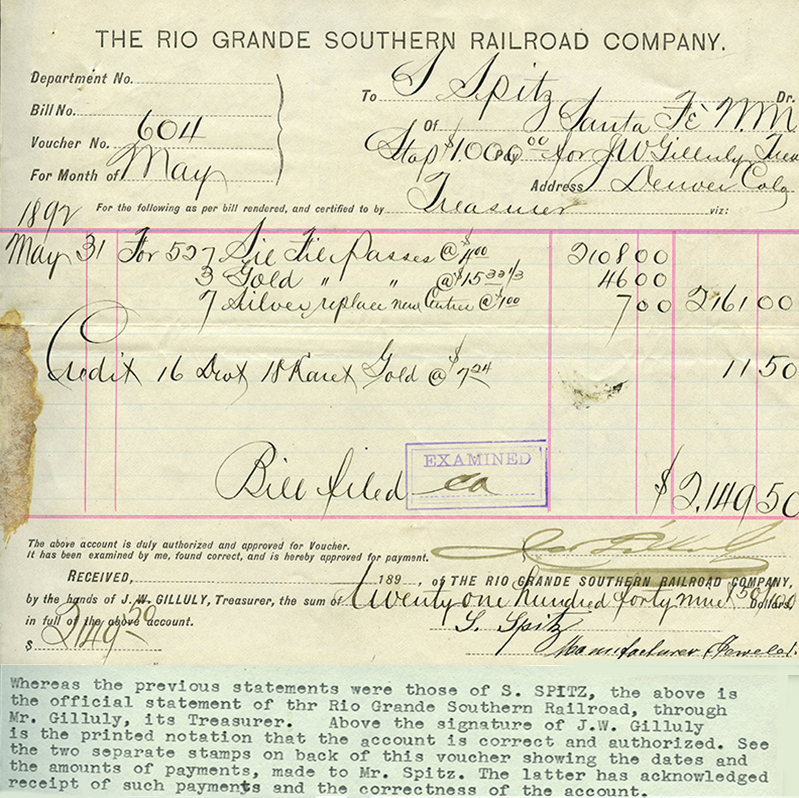 THE RIO GRANDE SOUTHERN RAILROAD COMPANY.
Department No.
To S Spitz Dr.
Bill No.
Of Santa Fè N.M
Voucher No. 604
$1000.00 for J W Gilluly Trea
For Month of May
Address Denver Colo
1892 For the following as per bill rendered, and certified to by Treasurer viz:
May 31 For 527 Sil Fil Passes @ $4.00 2108 00
3 Gold " " @ $15 33 1/3 46 00
7 Silver replace new Center @ $1.00 7 00 2161 00
Credit 16 Dwt 18 Karet Gold @ $ 11 50
Bill filed
EXAMINED
ca
$ 2,149 50
The above account is duly authorized and approved for Voucher.
It has been examined by me, found correct, and is hereby approved for payment.
RECEIVED, 189 , of THE RIO GRANDE SOUTHERN RAILROAD COMPANY,
by the hands of J. W. GILLULY, Treasurer, the sum of Twenty one hundred forty nine $50/100 Dollars,
in full of the above account.
$ 2149.50
S. Spitz
Manufacturer Jeweler.
Whereas the previous statements were those of S. SPITZ, the above is
the official statement of thr Rio Grande Southern Railroad, through
Mr. Gilluly, its Treasurer. Above the signature of J.W. Gilluly
is the printed notation that the account is correct and authorized. See
the two separate stamps on back of this voucher showing the dates and
the amounts of payments, made to Mr. Spitz. The latter has acknowledged
receipt of such payments and the correctness of the account.